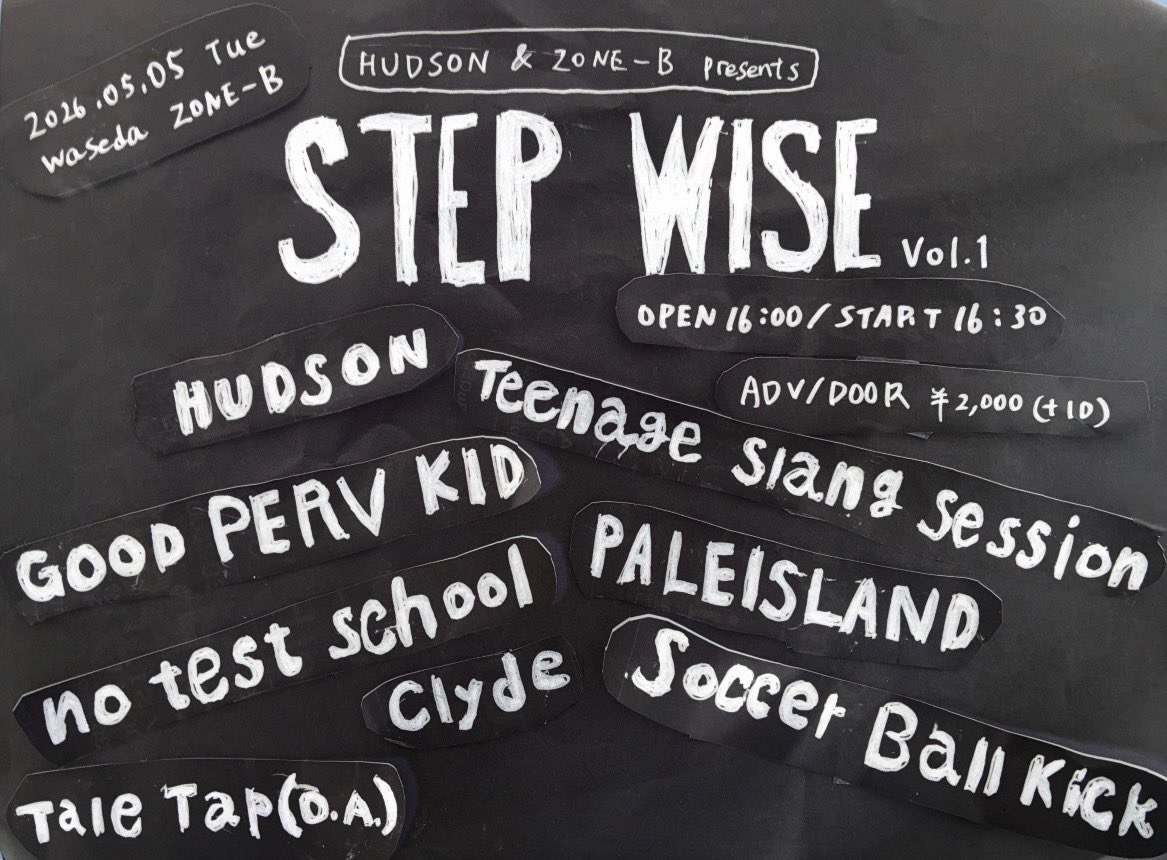 2026.05.05 Tue
waseda ZONE-B
HUDSON & ZONE-B presents
STEP WISE Vol.1
OPEN 16:00/START 16:30
ADV/DOOR ¥2,000 (+1D)
HUDSON
Teenage slang session
GOOD PERV KID
PALEISLAND
no test school
Clyde
Soccer Ball Kick
Tale Tap(O.A.)